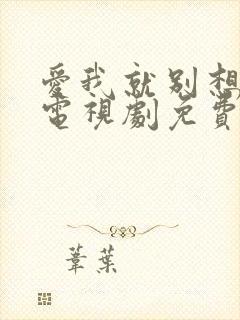 愛我就別想
電視劇免費
葦葉